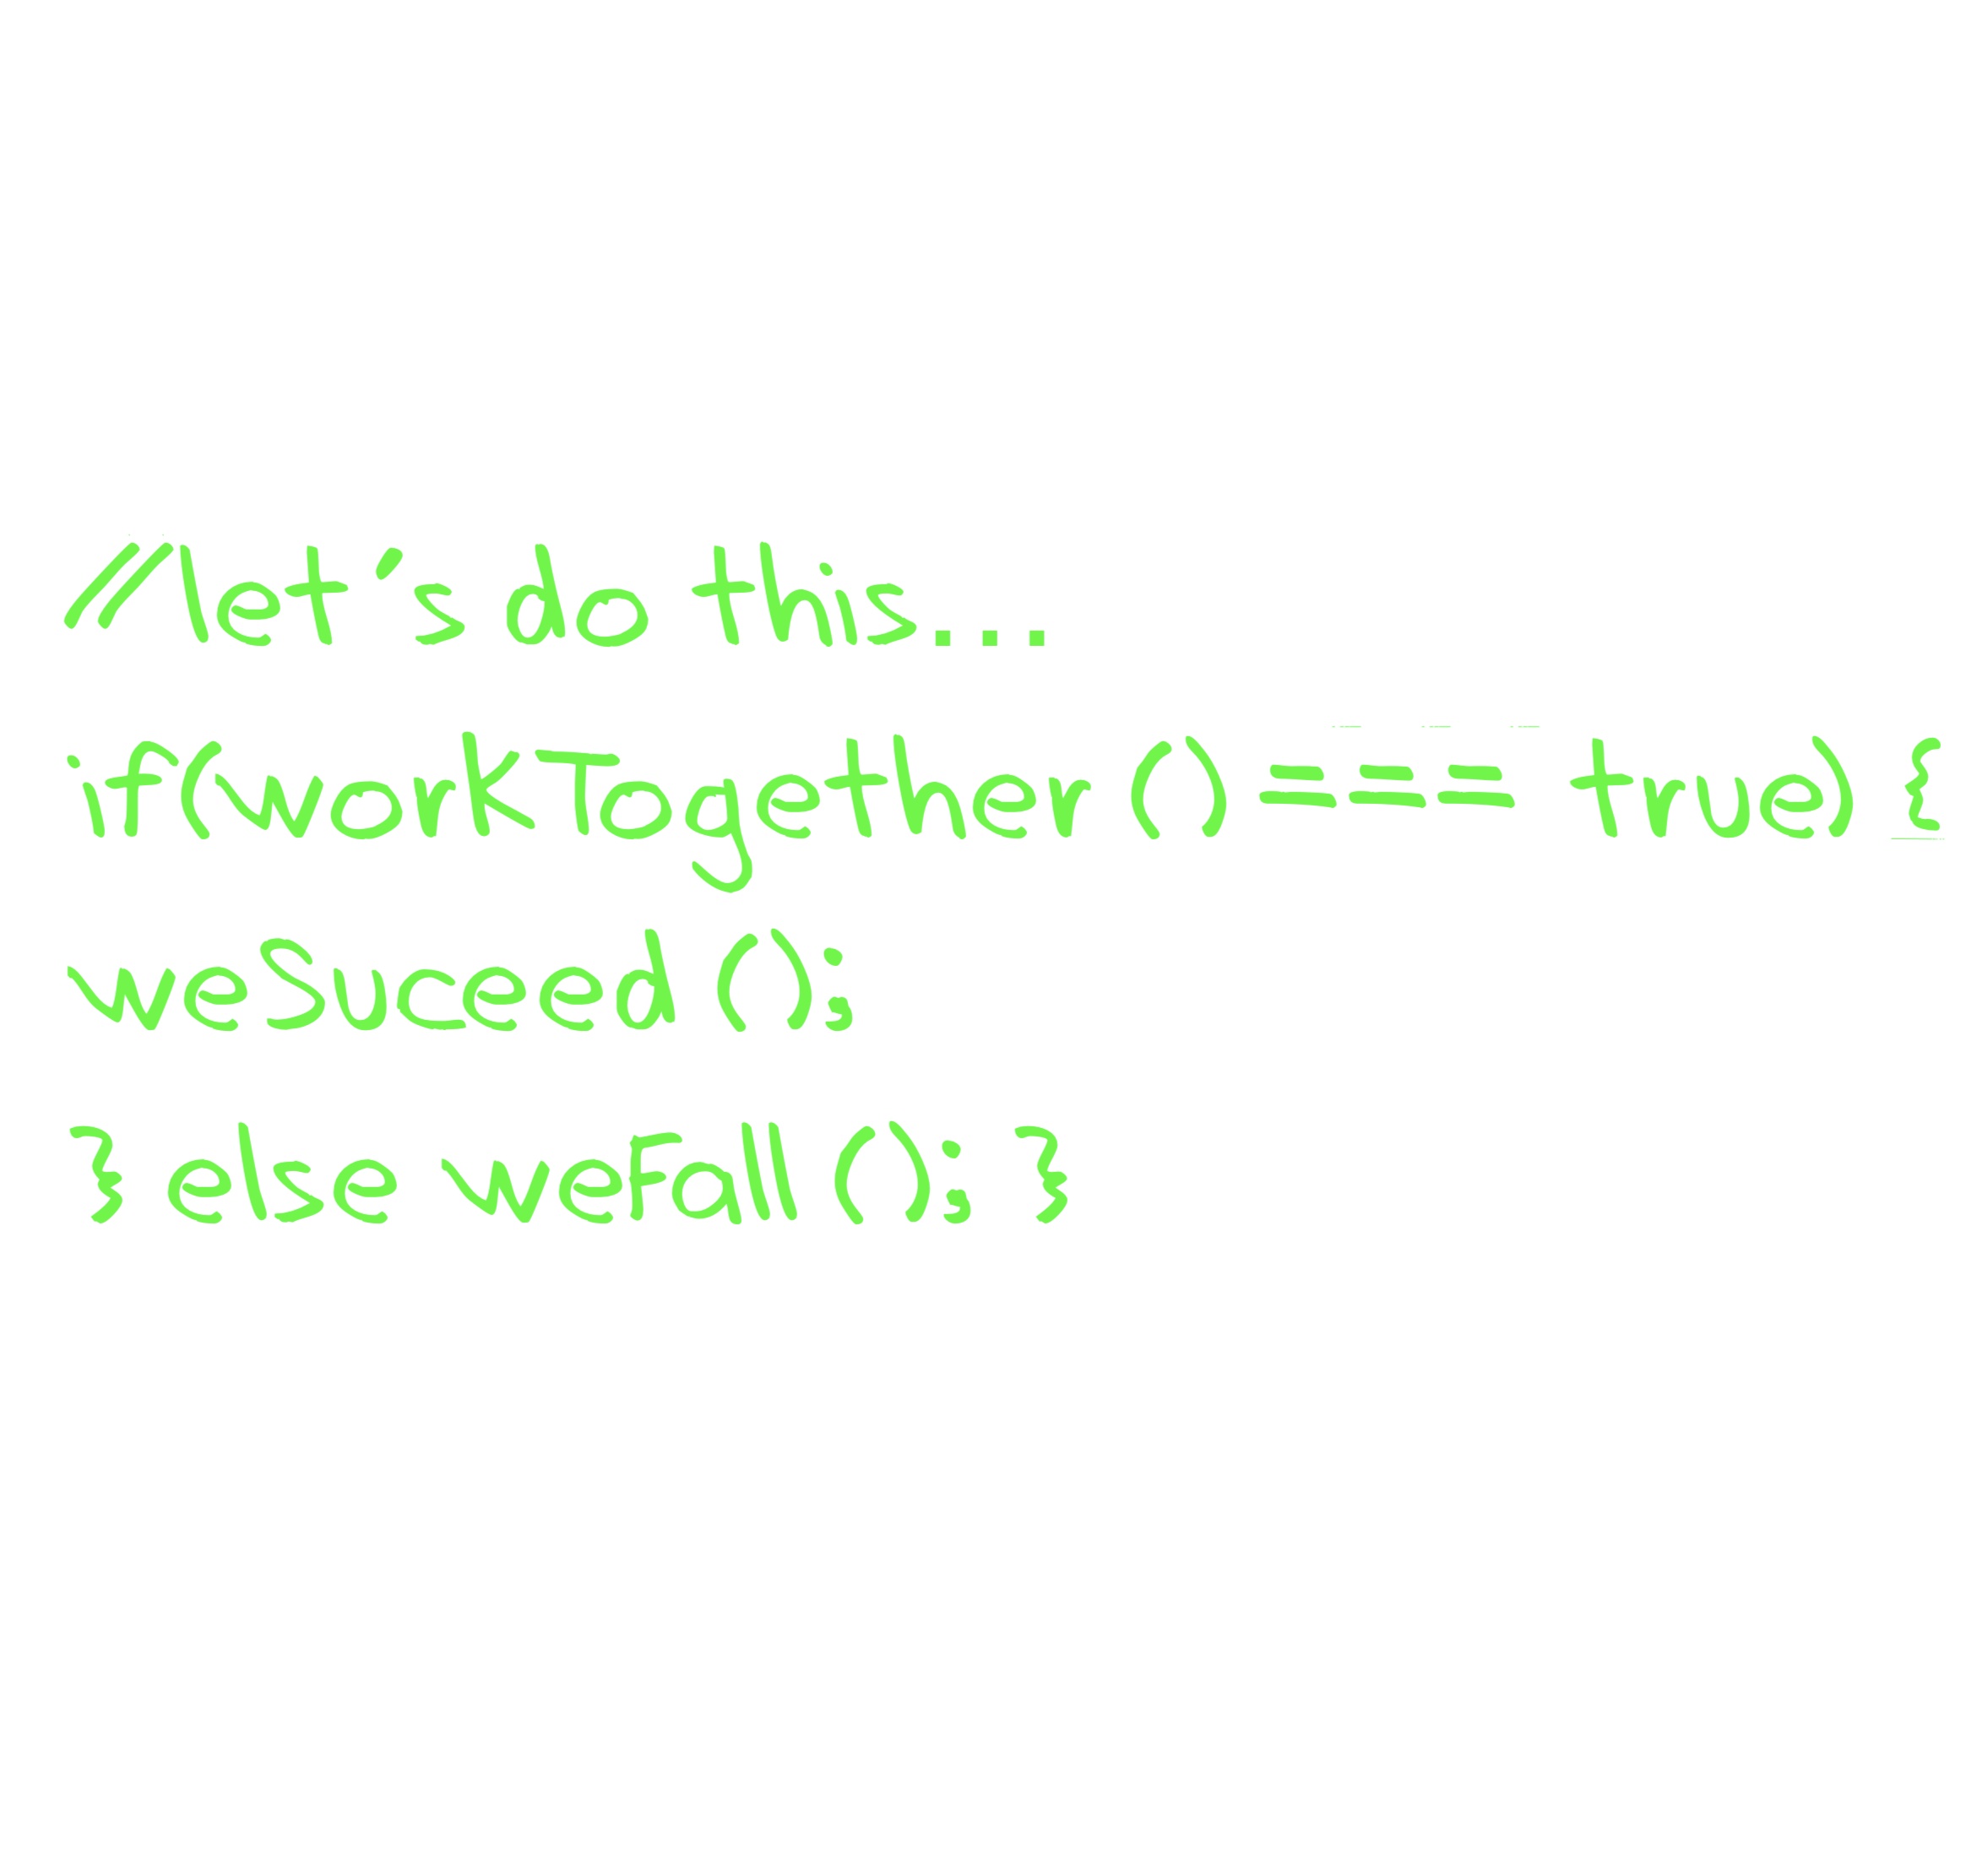 //let's do this...
if(workTogether () === true) {
weSuceed ();
} else weFall(); }